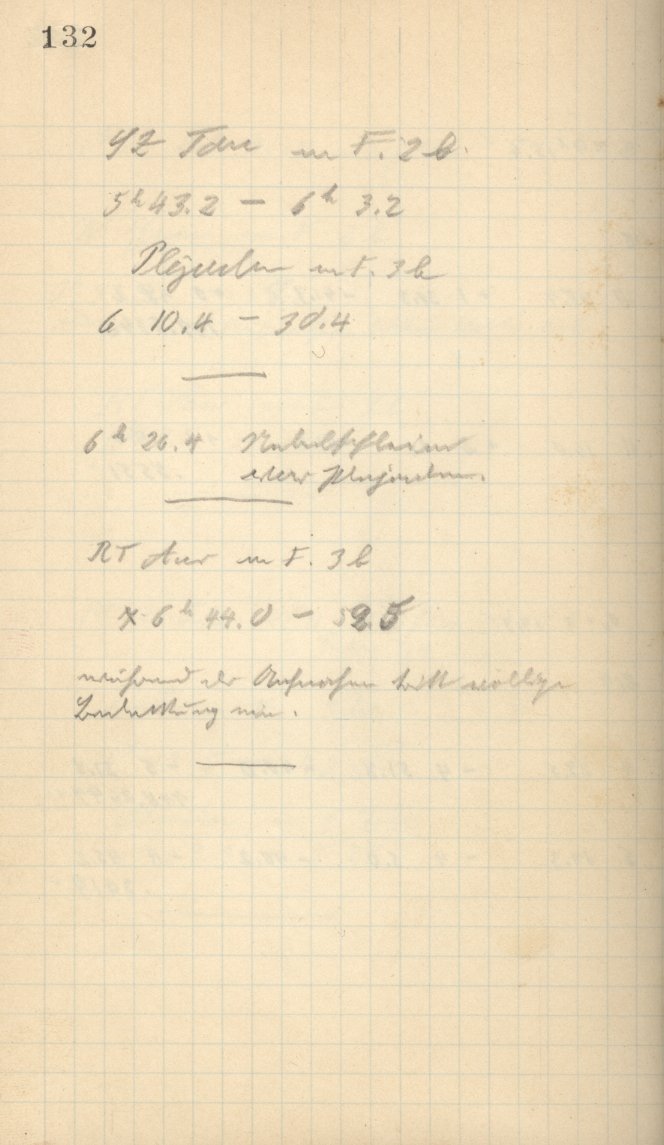 132
YZ Tau in F. 2b.
5h 43.2 – 6h 3.2
Plejaden in F. 3b
6 10.4 – 30.4
6h 26.4 Nebelschleier
über Plejaden.
RT Aur in F. 3b
6h 44.0 –
während der Aufnahme tritt völlige
Bedeckung ein.